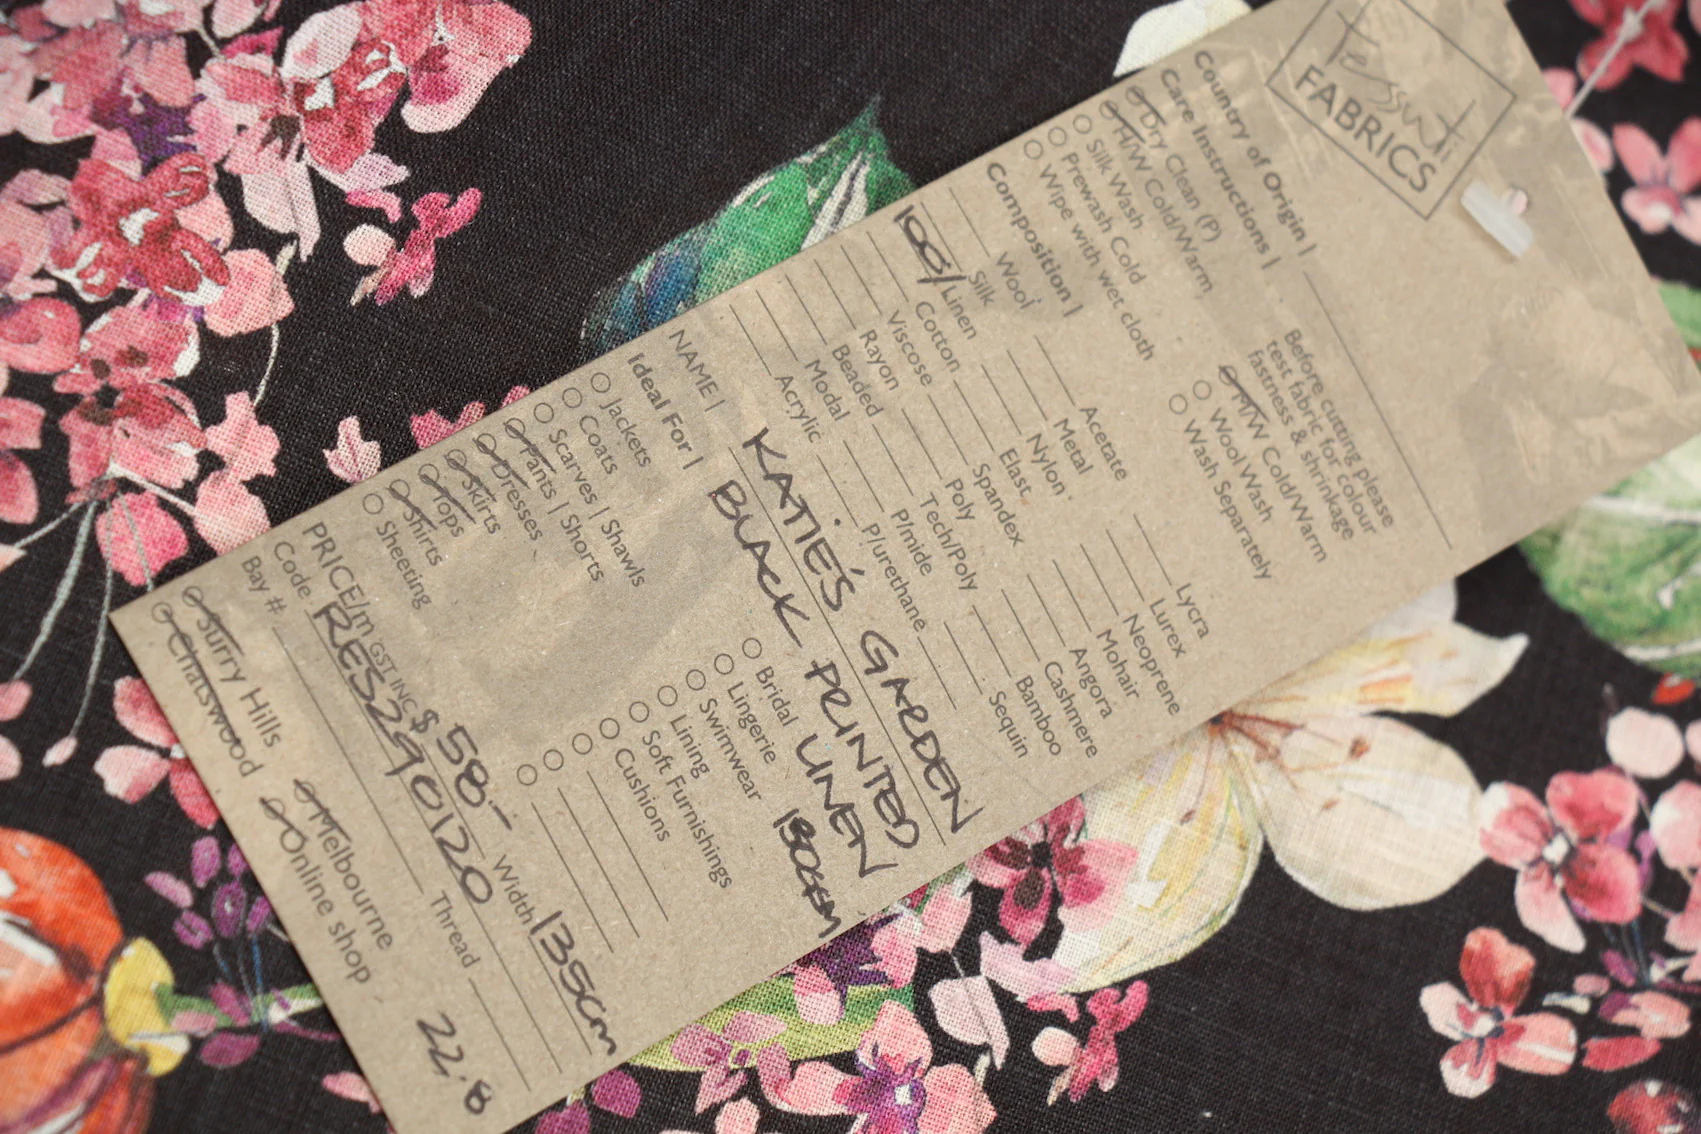 Tessuti
FABRICS
Country of Origin |
Care Instructions |
Dry Clean (P)
H/W Cold/Warm
Silk Wash
Prewash Cold
Wipe with wet cloth
Before cutting please
test fabric for colour
fastness & shrinkage
M/W Cold/Warm
Wool Wash
Wash Separately
Composition |
Wool Acetate Lycra
Silk Metal Lurex
100% Linen Nylon Neoprene
Cotton Elast. Mohair
Viscose Spandex Angora
Rayon Poly Cashmere
Beaded Tech/Poly Bamboo
Modal P/mide Sequin
Acrylic P/urethane
NAME | KATIE'S GARDEN
BLACK PRINTED
LINEN
Ideal For |
Jackets Bridal
Coats Lingerie
Scarves | Shawls Swimwear
Pants | Shorts Lining
Dresses Soft Furnishings
Skirts Cushions
Tops
Shirts
Sheeting
PRICE/m GST INC $58.- Width 135cm
Code RES290120 Thread
Bay #:
Surry Hills Melbourne
Chatswood Online shop
22.8